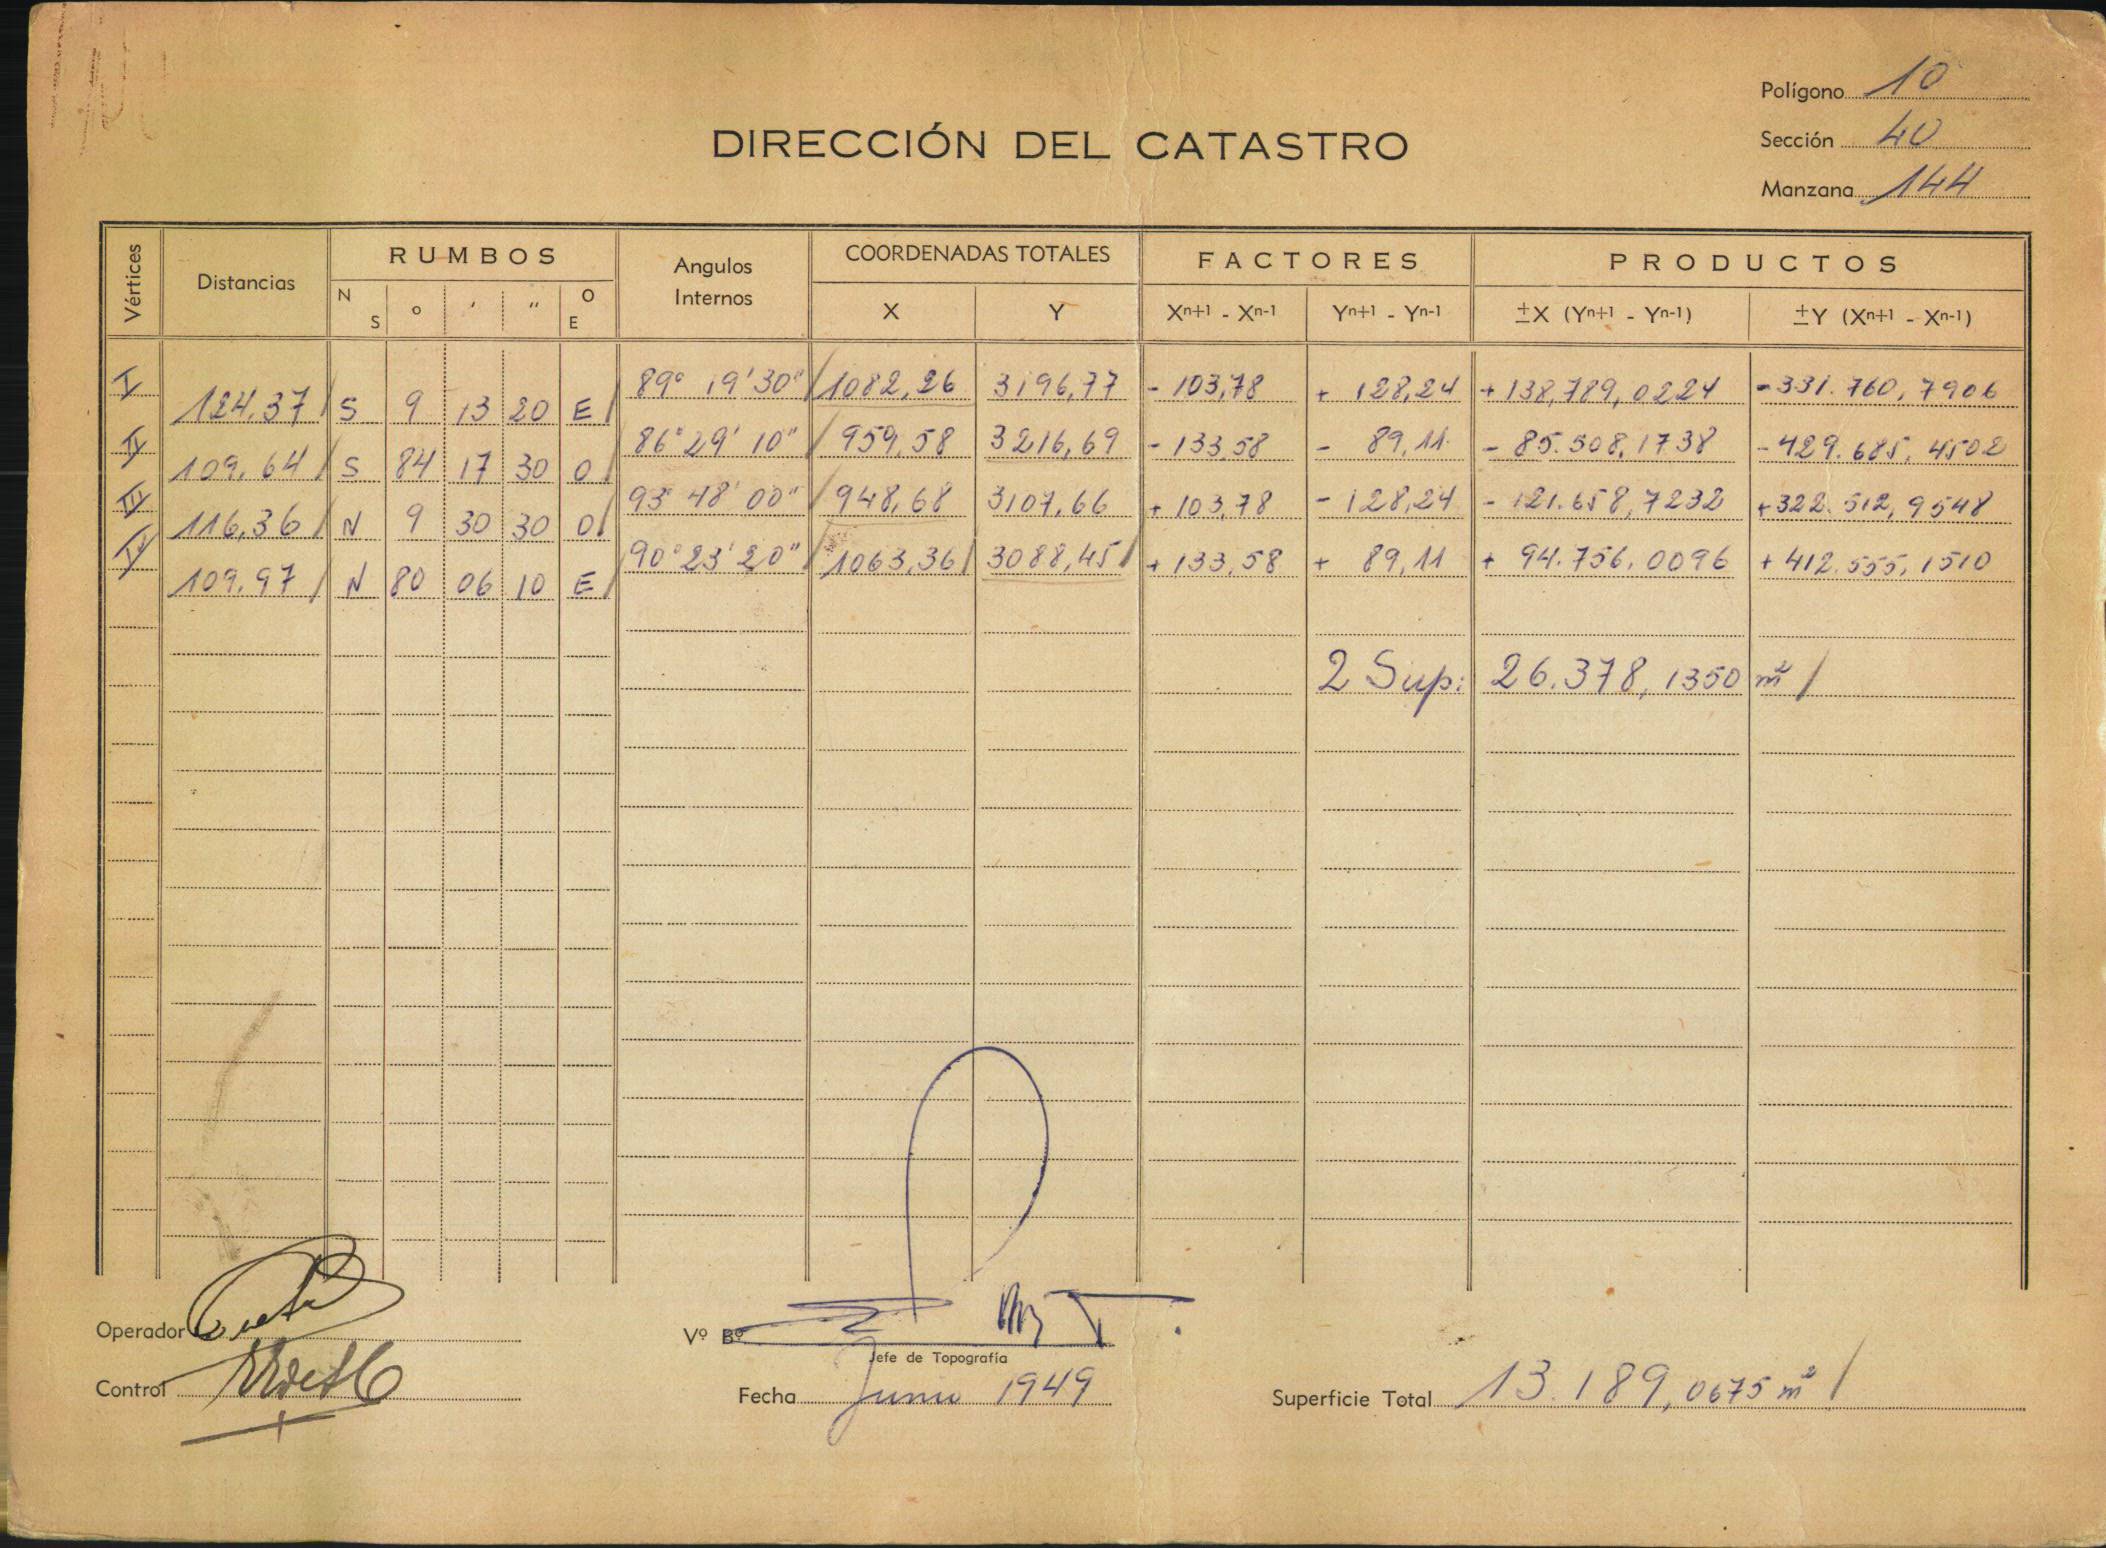 Polígono 10
DIRECCIÓN DEL CATASTRO
Sección 40
Manzana 144
Vértices Distancias RUMBOS Angulos Internos COORDENADAS TOTALES FACTORES PRODUCTOS
N S ° ′ ″ O E X Y Xn+1 - Xn-1 Yn+1 - Yn-1 ±X (Yn+1 - Yn-1) ±Y (Xn+1 - Xn-1)
I 89° 19' 30" 1082,26 3196,77 - 103,78 + 128,24 + 138,789,0224 - 331.760,7906
124,37 S 9 13 20 E
II 86° 29' 10" 959,58 3216,69 - 133,58 - 89,11 - 85.508,1738 - 429.685,4502
109,64 S 84 17 30 O
III 93° 48' 00" 948,68 3107,66 + 103,78 - 128,24 - 121.658,7232 + 322.512,9548
116,36 N 9 30 30 O
IV 90° 23' 20" 1063,36 3088,45 + 133,58 + 89,11 + 94.756,0096 + 412.555,1510
109,97 N 80 06 10 E
2 Sup: 26.378,1350 m²
Operador
Vº Bº
Jefe de Topografía
Control
Fecha Junio 1949
Superficie Total 13.189,0675 m²